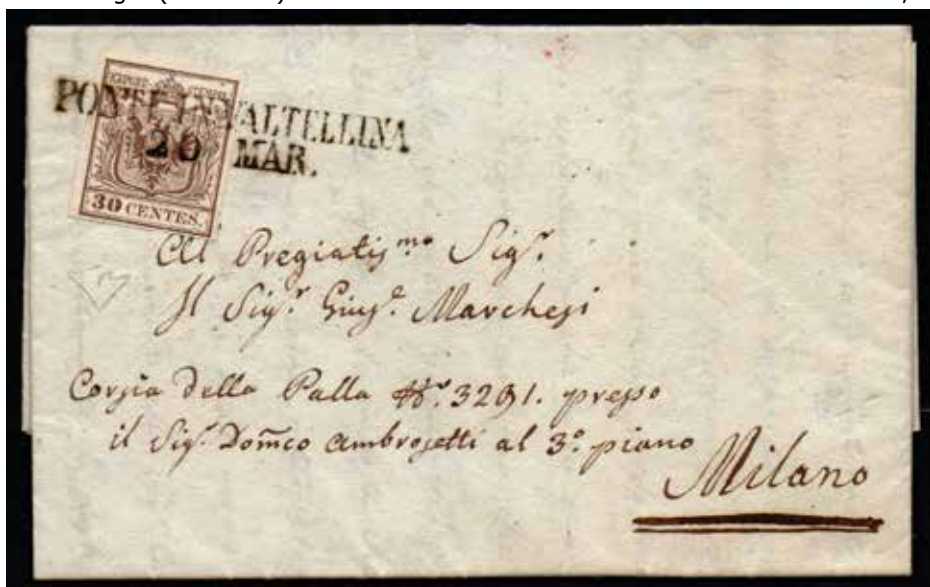 PONTE IN VALTELLINA
20 MAR.
30 CENTES.
All Pregiatis.mo Sigr.
Il Sigr. Giusе. Marchesi
Corsia della Palla No. 3291. presso
il Sigr. Dom̃co Ambrosetti al 3o. piano
Milano